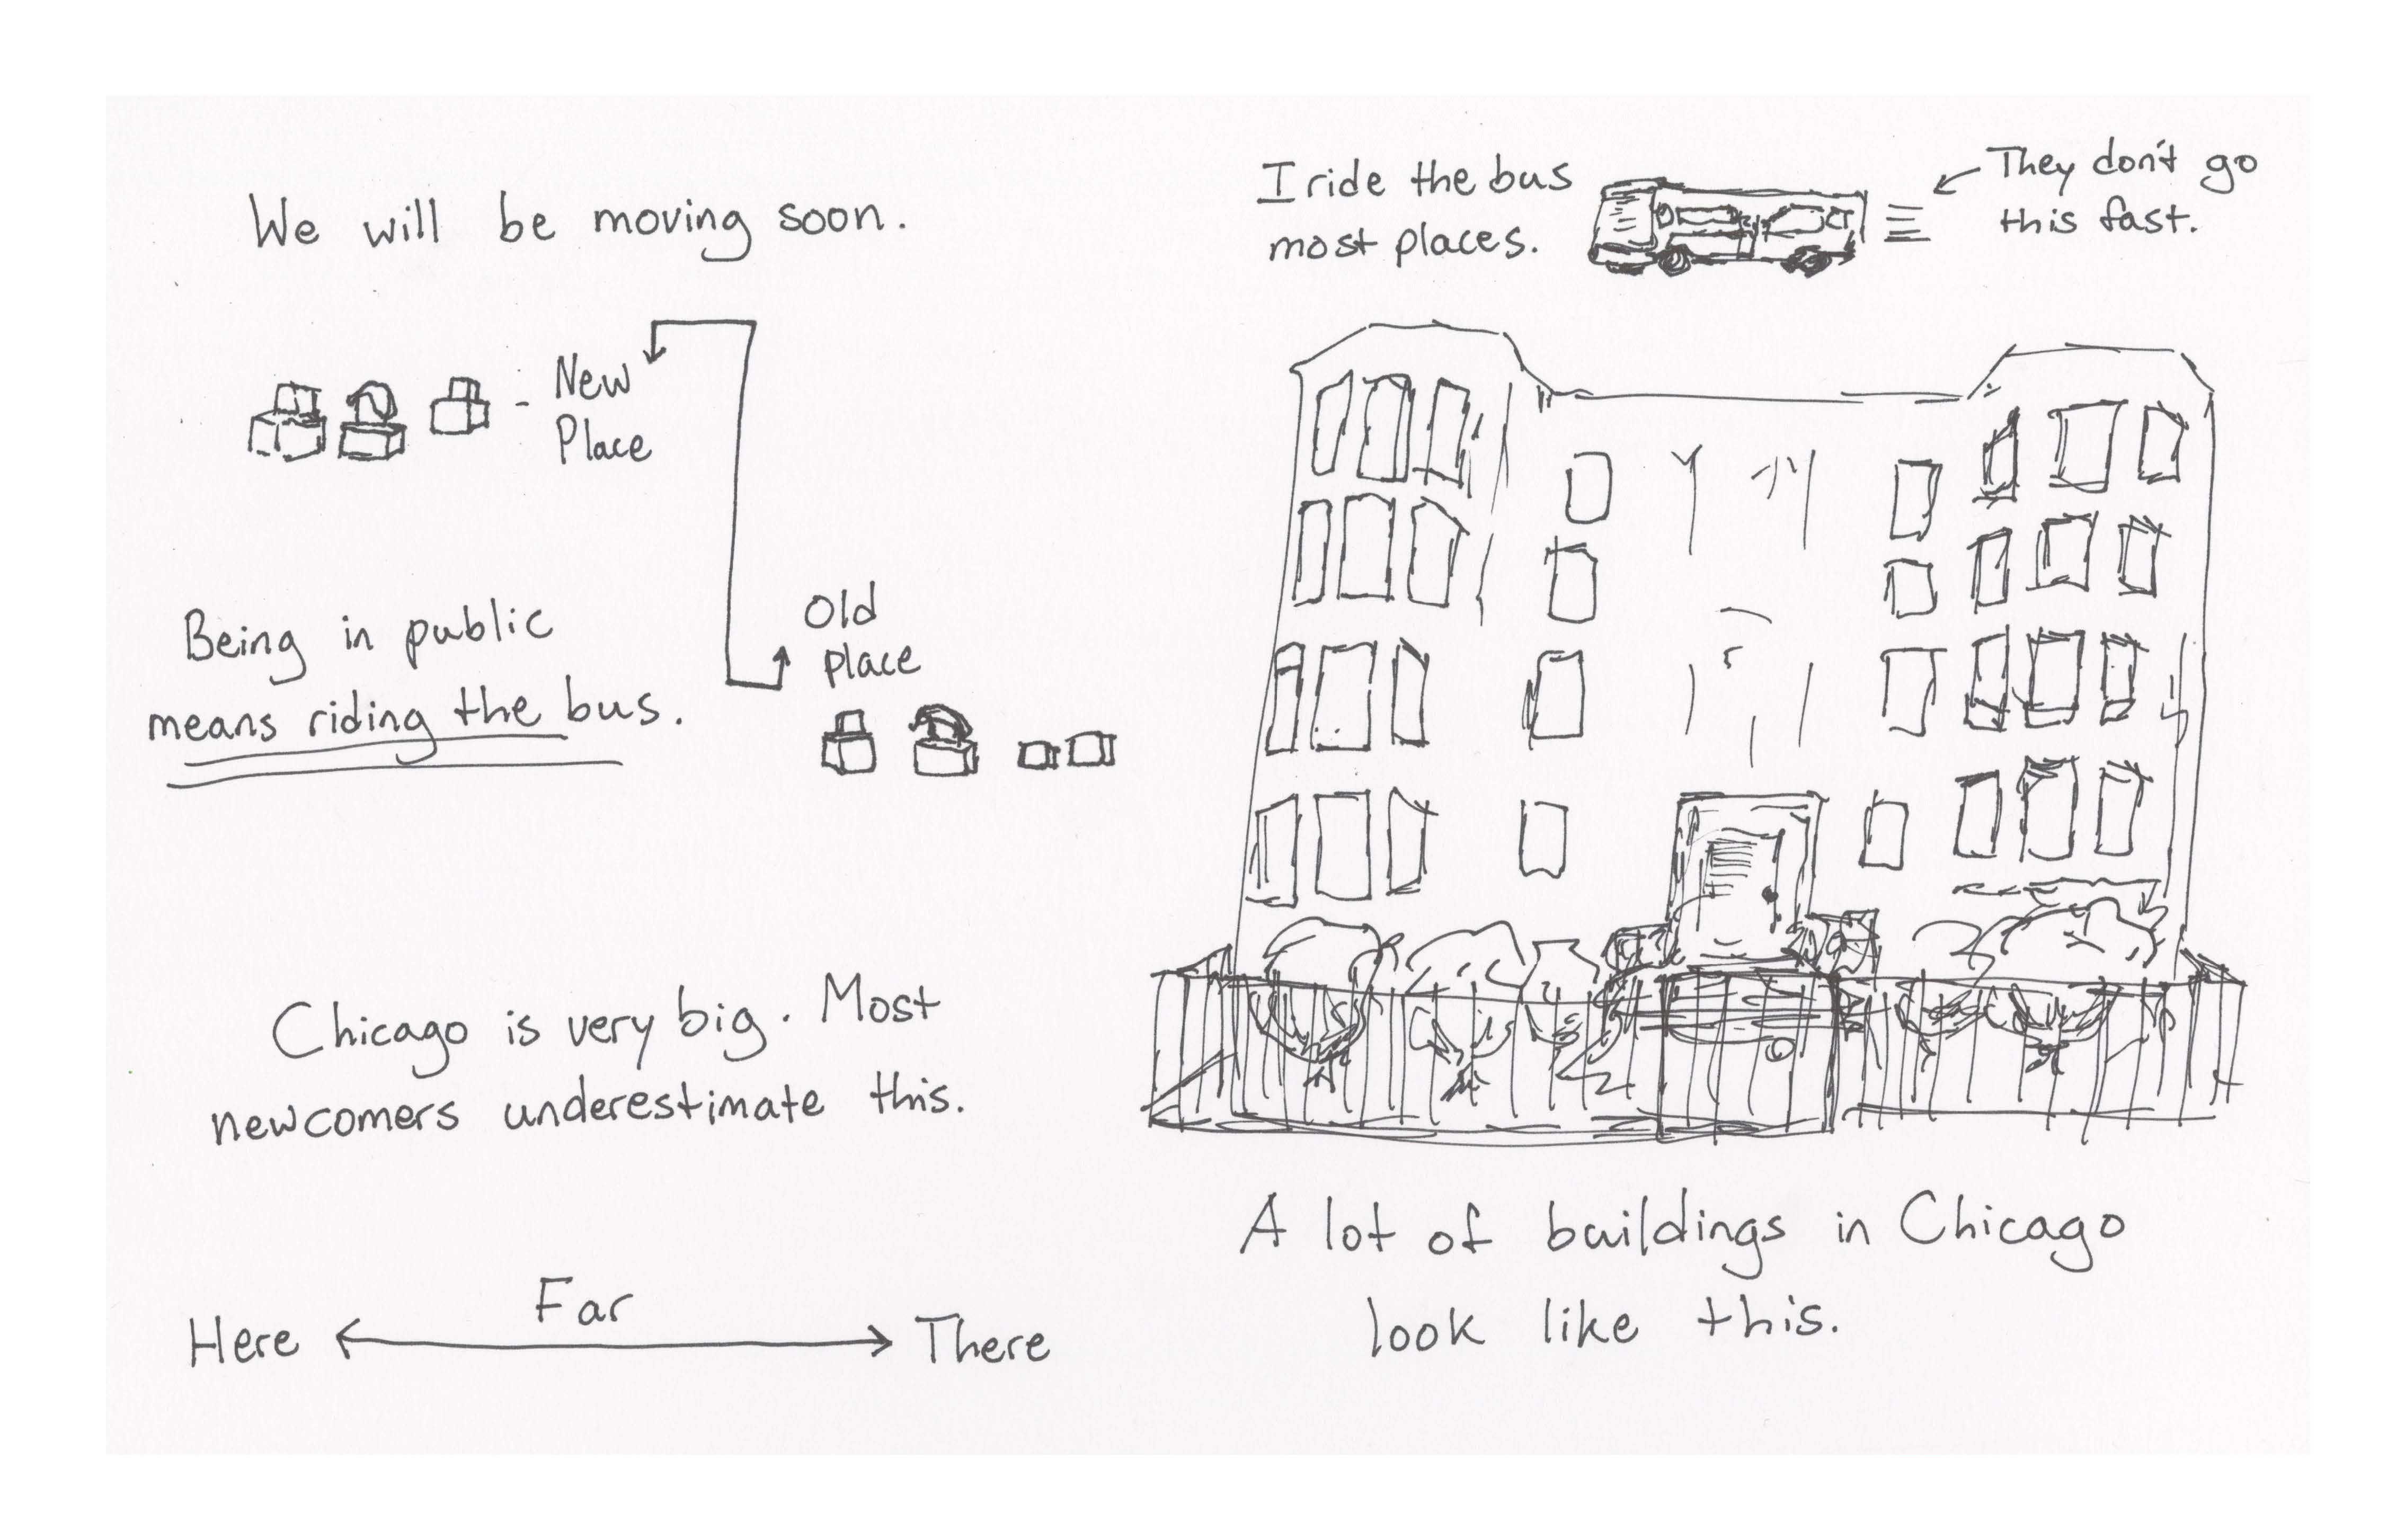 We will be moving soon.
New
Place
Old
place
Being in public
means riding the bus.
Chicago is very big. Most
newcomers underestimate this.
Far
Here
There
I ride the bus
most places.
They don't go
this fast.
A lot of buildings in Chicago
look like this.